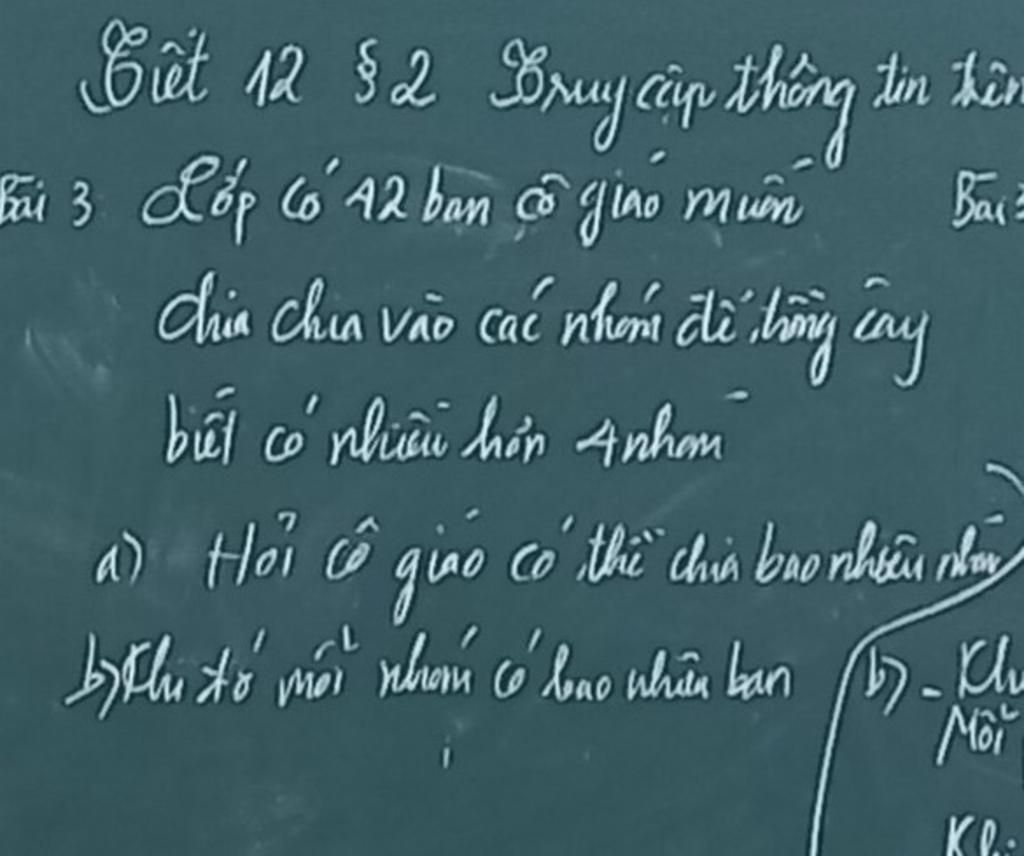 Tiết 12 §2 Truy cập thông tin trên
Bài 3 Lớp có 42 bạn cô giáo muốn
chia chia vào các nhóm để trồng cây
biết có nhiều hơn 4 nhóm
a) Hỏi cô giáo có thể chia bao nhiêu nhóm
b) Khi đó mỗi nhóm có bao nhiêu bạn
Bài 3
b) - Kh
Mỗi
Kh